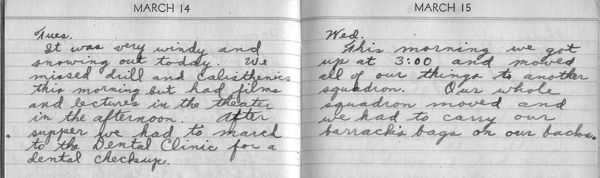 MARCH 14
Tues.
It was very windy and
snowing out today. We
missed drill and calisthenics
this morning but had films
and lectures in the theater
in the afternoon. After
supper we had to march
to the Dental Clinic for a
dental checkup.
MARCH 15
Wed.
This morning we got
up at 3:00 and moved
all of our things to another
squadron. Our whole
squadron moved and
we had to carry our
barracks bags on our backs.